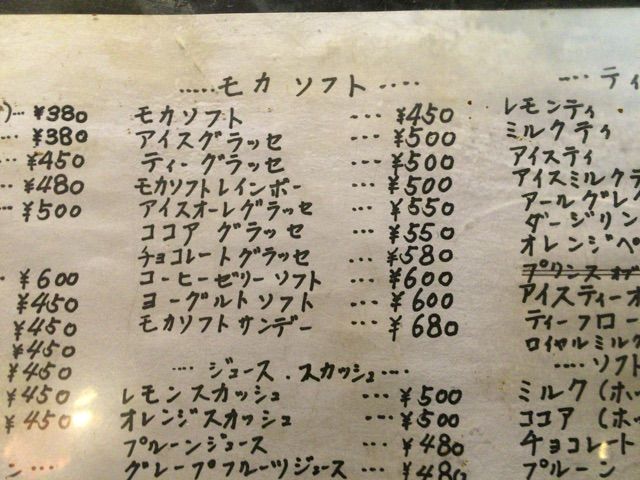 ‥‥モカ ソフト‥‥
モカソフト ‥‥ ¥450
アイスグラッセ ‥‥ ¥500
ティーグラッセ ‥‥ ¥500
モカソフトレインボー ‥‥ ¥500
アイスオーレグラッセ ‥‥ ¥550
ココア グラッセ ‥‥ ¥550
チョコレートグラッセ ‥‥ ¥580
コーヒーゼリーソフト ‥‥ ¥600
ヨーグルトソフト ‥‥ ¥600
モカソフトサンデー ‥‥ ¥680
‥‥ジュース.スカッシュ‥‥
レモンスカッシュ ‥‥ ¥500
オレンジスカッシュ ‥‥ ¥500
プルーンジュース ‥‥ ¥480
グレープフルーツジュース ‥‥ ¥480
¥380
¥380
¥450
¥480
¥500
¥600
¥450
¥450
¥450
¥450
¥450
‥‥ティ
レモンティ
ミルクティ
アイスティ
アイスミルクテ
アールグレ
ダージリン
オレンジペ
アイスティーオ
ティーフロー
ロイヤルミルク
‥‥ソフト
ミルク(ホ
ココア(ホ
チョコレート
プルーン